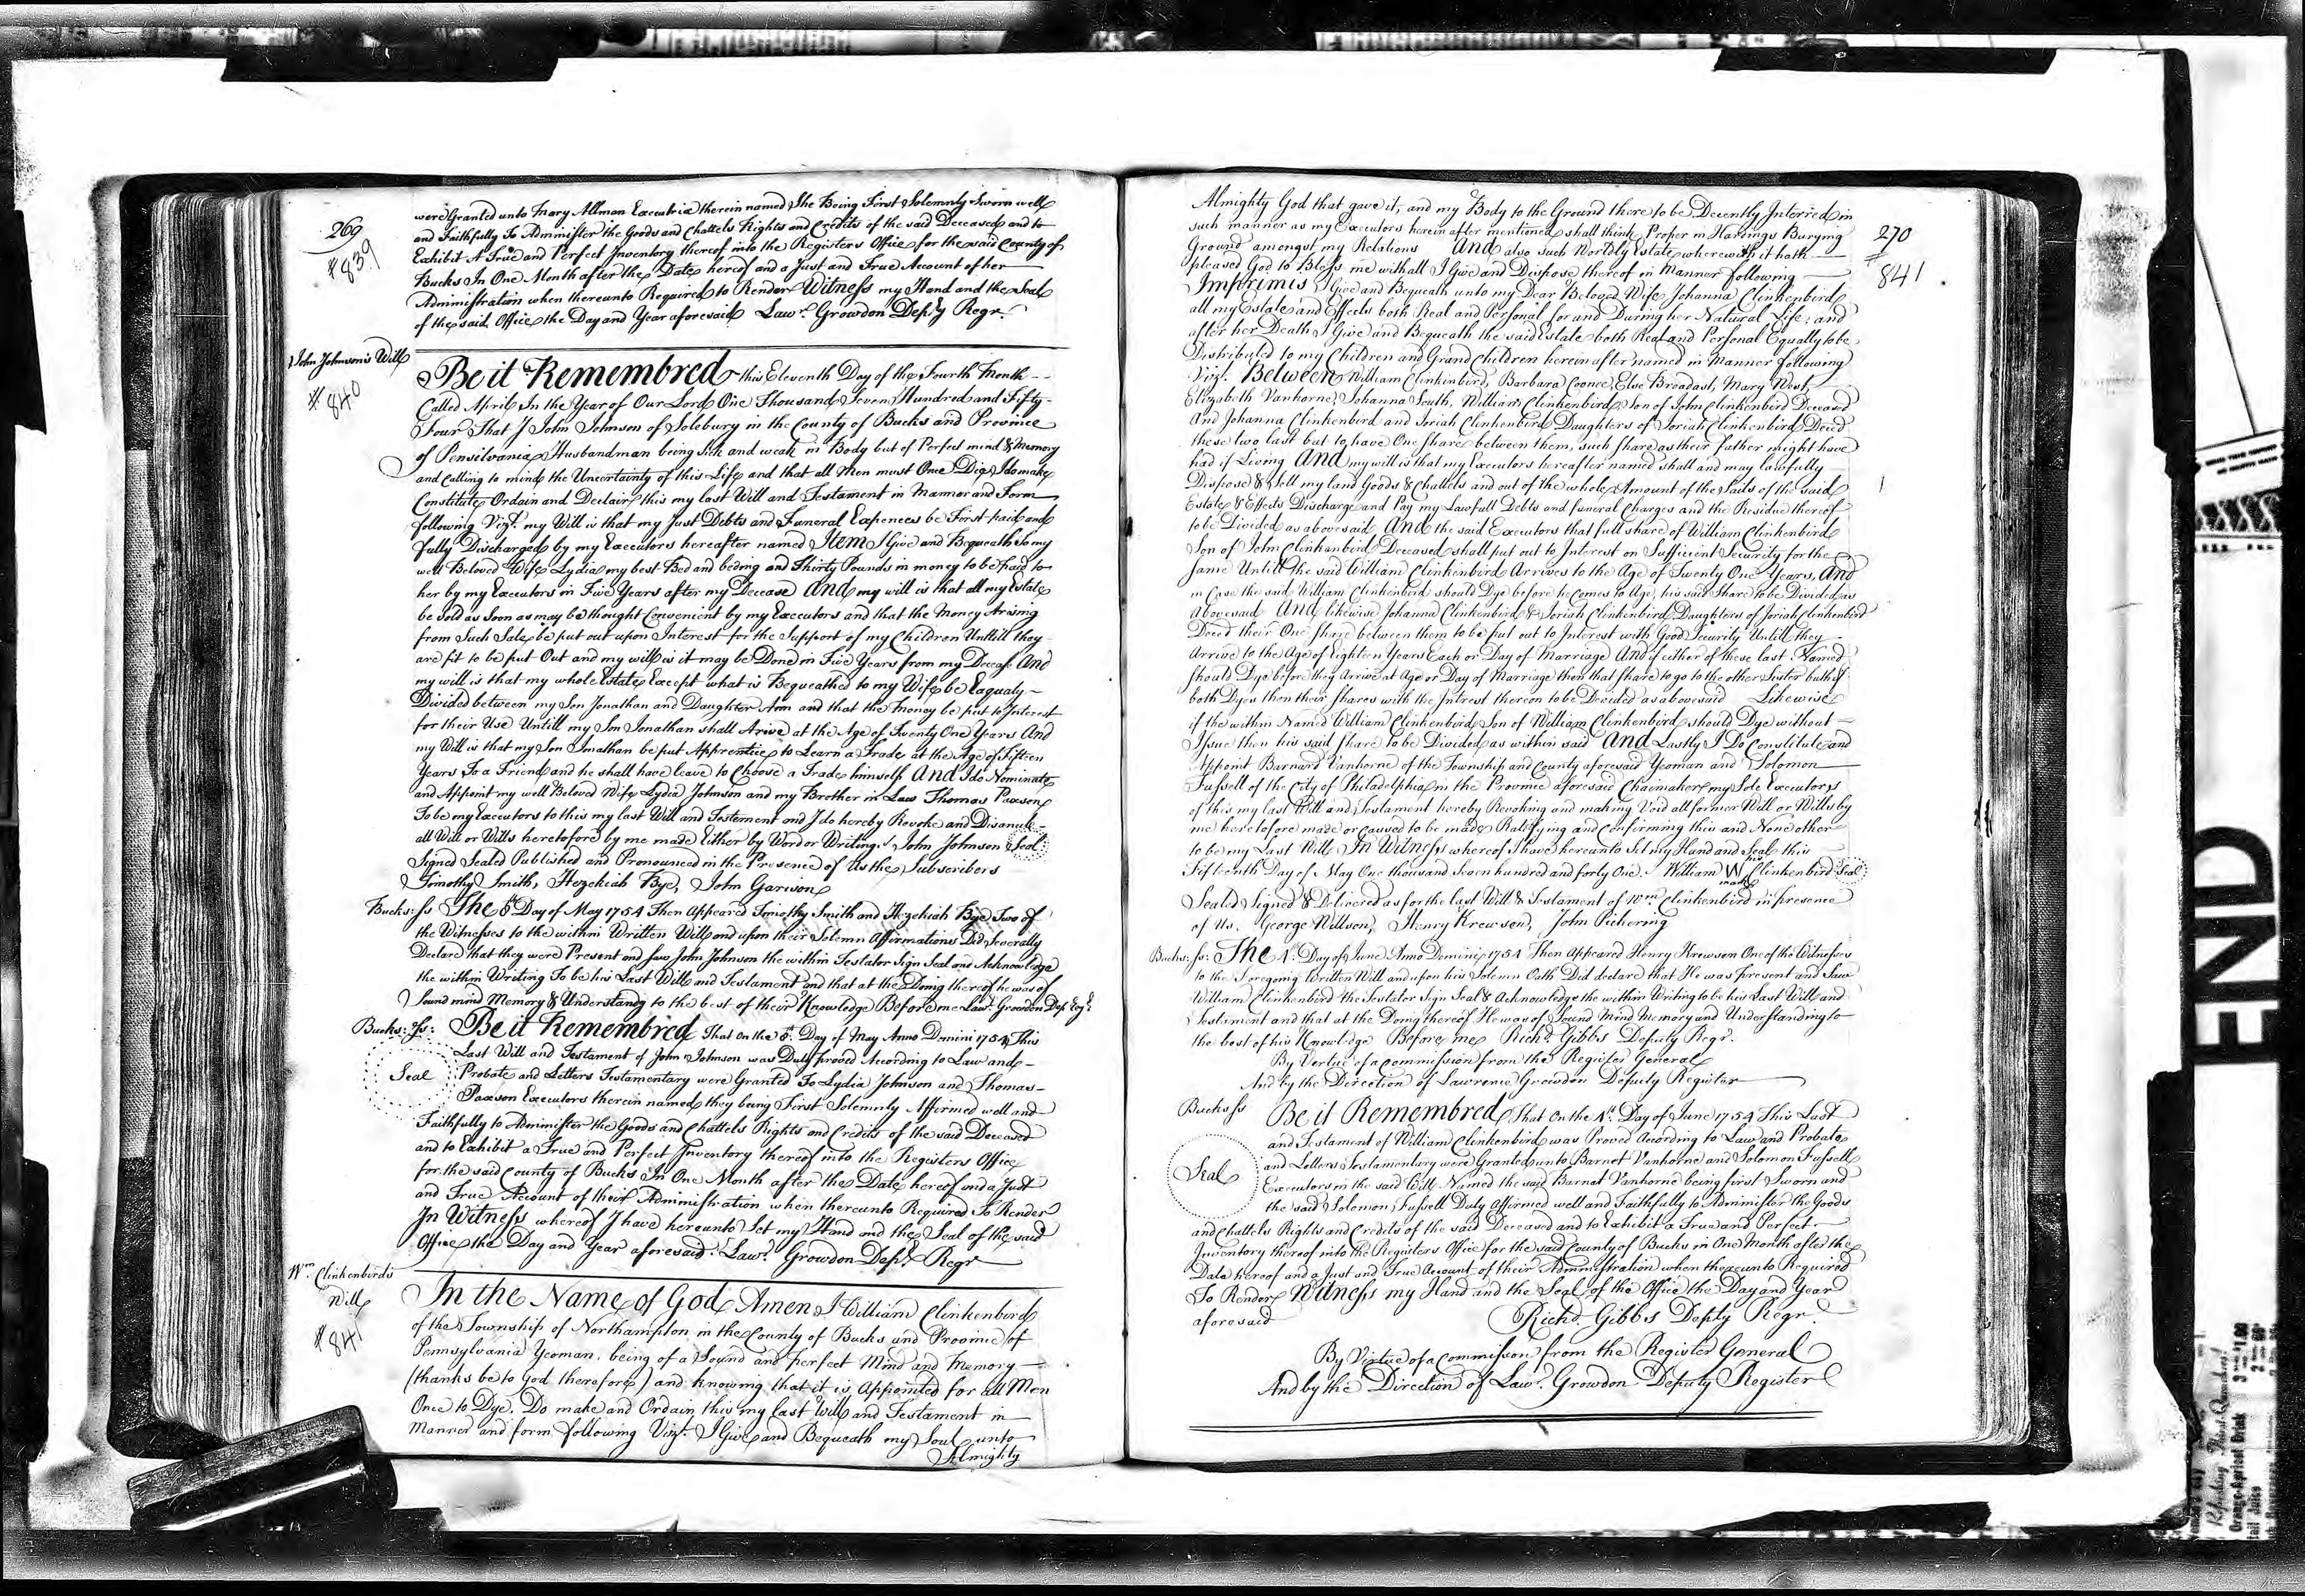 269
#839
were Granted unto Mary Allman Executrix therein named She Being First Solemnly Sworn well
and Faithfully To Administer the Goods and Chattels Rights and Credits of the said Deceased and to
Exhibit A True and Perfect Inventory thereof into the Registers Office for the said County of
Bucks In One Month after the Date hereof and a Just and True Account of her
Administration when thereunto Required to Render Witness my Hand and the Seal
of the said Office the Day and Year aforesaid Lawr. Growdon Depty Regr.
John Johnson's Will
#840
Be it Remembred this Eleventh Day of the Fourth Month
Called April In the Year of Our Lord One Thousand Seven Hundred and Fifty
Four That I John Johnson of Solebury in the County of Bucks and Province
of Pensilvania Husbandman being Sick and weak in Body but of Perfect mind & Memory
and Calling to mind the Uncertainty of this Life and that all Men must Once Die, I do make
Constitute Ordain and Declair this my last Will and Testament in Manner and Form
following Vizt. my Will is that my Just Debts and Funeral Expences be First paid and
fully Discharged by my Executors hereafter named Item I Give and Bequeath to my
well Beloved Wife Lydia my best Bed and beding and Thirty Pounds in money to be paid to
her by my Executors in Five Years after my Decease And my will is that all my Estate
be sold as Soon as may be thought Convenient by my Executors and that the Money Arising
from Such Sale be put out upon Interest for the Support of my Children Untill they
are fit to be put Out and my will is it may be Done in Five Years from my Decease And
my will is that my whole Estate Except what is Bequeathed to my Wife be Eaqualy
Divided between my Son Jonathan and Daughter Ann and that the Money be put to Interest
for their Use Untill my Son Jonathan shall Arive at the Age of Twenty One Years And
my Will is that my Son Jonathan be put Apprentice to Learn a Trade at the Age of Fifteen
Years To a Friend and he shall have leave to Choose a Trade himself And I do Nominate
and Appoint my well Beloved Wife Lydia Johnson and my Brother in Law Thomas Paxson
To be my Executors to this my last Will and Testement and I do hereby Revoke and Disanule
all Will or Wills heretofore by me made Either by Word or Writing. John Johnson Seal
Signed Sealed Published and Pronounced in the Presence of Us the Subscribers
Timothy Smith, Hezekiah Bye, John Garison
Bucks: ss The 8th Day of May 1754 Then Appeared Timothy Smith and Hezekiah Bye Two of
the Witnesses to the within Written Will and upon their Solemn Affirmations Did Severally
Declare that they were Present and saw John Johnson the within Testator Sign Seal and Acknowledge
the within Writing To be his Last Will and Testament and that at the Doing thereof he was of
Sound mind Memory & Understandg to the best of their Knowledge Before me Lawr. Growdon Dep. Regr.
Bucks: ss: Be it Remembred That On the 8th. Day of May Anno Domini 1754 This
Last Will and Testament of John Johnson was Duly proved According to Law and
Seal
Probate and Letters Testamentary were Granted To Lydia Johnson and Thomas
Paxson Executors therein named they being First Solemnly Affirmed well and
Faithfully to Administer the Goods and Chattels Rights and Credits of the said Deceased
and to Exhibit a True and Perfect Inventory thereof into the Registers Office
for the said County of Bucks In One Month after the Date hereof and a Just
and True Account of their Administration when thereunto Required To Render
In Witness whereof I have hereunto Set my Hand and the Seal of the said
Office the Day and Year aforesaid. Lawr. Growdon Depy. Regr
Wm. Clinkenbird's
Will
#841
In the Name of God Amen I William Clinkenbird
of the Township of Northampton in the County of Bucks and Province of
Pennsylvania Yeoman, being of a Sound and perfect Mind and Memory
(thanks be to God therefore) and knowing that it is Appointed for all Men
Once to Dye. Do make and Ordain this my last Will and Testament in
Manner and form following Vizt. I Give and Bequeath my Soul unto
Almighty
270
#
841
Almighty God that gave it, and my Body to the Ground there to be Decently Interred in
such manner as my Executors herein after mentioned shall think Proper in Hardings Burying
Ground amongst my Relations And also such Worldly Estate wherewith it hath
pleased God to Bless me withall I Give and Dispose thereof in Manner following
Imprimis I Give and Bequeath unto my Dear Beloved Wife Johanna Clinkenbird
all my Estate and Effects both Real and Personal for and During her Natural Life, and
after her Death I Give and Bequeath the said Estate both Real and Personal Equally to be
Distributed to my Children and Grand Children herein after named in Manner following
Vizt. Between William Clinkinbird, Barbara Coonce, Else Broadast, Mary West,
Elizabeth Vanhorne, Johanna South, William Clinkenbird Son of John Clinkenbird Deceased
And Johanna Clinkenbird and Joriah Clinkenbird Daughters of Joriah Clinkenbird Deced
these two last but to have One Share between them, such Share as their father might have
had if Living And my will is that my Executors hereafter named shall and may lawfully
Dispose & Sell my land Goods & Chattels and out of the whole Amount of the Sails of the said
Estate & Effects Discharge and Pay my Lawfull Debts and funeral Charges and the Residue thereof
to be Divided as abovesaid And the said Executors that full share of William Clinkenbird
Son of John Clinkenbird Deceased shall put out to Interest on Sufficient Security for the
same Untill the said William Clinkenbird Arrives to the Age of Twenty One Years, And
in Case the said William Clinkenbird should Dye before he comes to Age, his said Share to be Divided as
abovesaid And likewise Johanna Clinkenbird & Joriah Clinkenbird Daughters of Joriah Clinkenbird
Deced their One Share between them to be put out to Interest with Good Security Untill they
Arrive to the Age of Eighteen Years Each or Day of Marriage And if either of these last Named
should Dye before they Arrive at Age or Day of Marriage then that share to go to the other Sister but if
both Dyes then their Shares with the Intrest thereon to be Divided as abovesaid Likewise
if the within Named William Clinkenbird Son of William Clinkenbird should Dye without
Issue then his said share to be Divided as within said And Lastly I Do Constitute and
Appoint Barnard Vanhorne of the Township and County aforesaid Yeoman and Solomon
Fussell of the City of Philadelphia in the Province aforesaid Chairmaker my Sole Executors
of this my last Will and Testament hereby Revoking and making Void all former Will or Wills by
me heretofore made or caused to be made Ratifying and Confirming this and None other
to be my Last Will In Witness whereof I have hereunto Set my Hand and Seal this
Fifteenth Day of May One thousand Seven hundred and forty One. William his W mark Clinkenbird Seal
Sealed Signed & Delivered as for the last Will & Testament of Wm Clinkenbird in presence
of Us. George Willson, Henry Krewson, John Pickering
Bucks: ss: The 4th. Day of June Anno Domini 1754 Then Appeared Henry Krewson One of the Witnesses
to the Foregoing Written Will and upon his Solemn Oath Did declare that He was present and Saw
William Clinkenbird the Testator Sign Seal & Acknowledge the within Writing to be his Last Will and
Testiment and that at the Doing thereof He was of Sound Mind Memory and Understanding to
the best of his Knowledge Before me Richd. Gibbs Deputy Regr.
By Vertue of a Commission from the Register General
And by the Direction of Lawrence Growdon Deputy Register
Bucks ss Be it Remembred That On the 4th. Day of June 1754 This Last
and Testament of William Clinkenbird was Proved According to Law and Probate
Seal
and Letters Testamentary were Granted unto Barnet Vanhorne and Solomon Fussell
Executors in the said Will Named the said Barnet Vanhorne being first Sworn and
the said Solomon Fussell Duly Affirmed well and Faithfully to Administer the Goods
and Chattels Rights and Credits of the said Deceased and to Exhibit a True and Perfect
Inventory thereof into the Registers Office for the said County of Bucks in One Month after the
Date hereof and a Just and True Account of their Administration when thereunto Required
To Render Witness my Hand and the Seal of the Office the Day and Year
aforesaid Richd. Gibbs Depty Regr.
By Virtue of a Commission from the Register General
And by the Direction of Lawr. Growdon Deputy Register
END